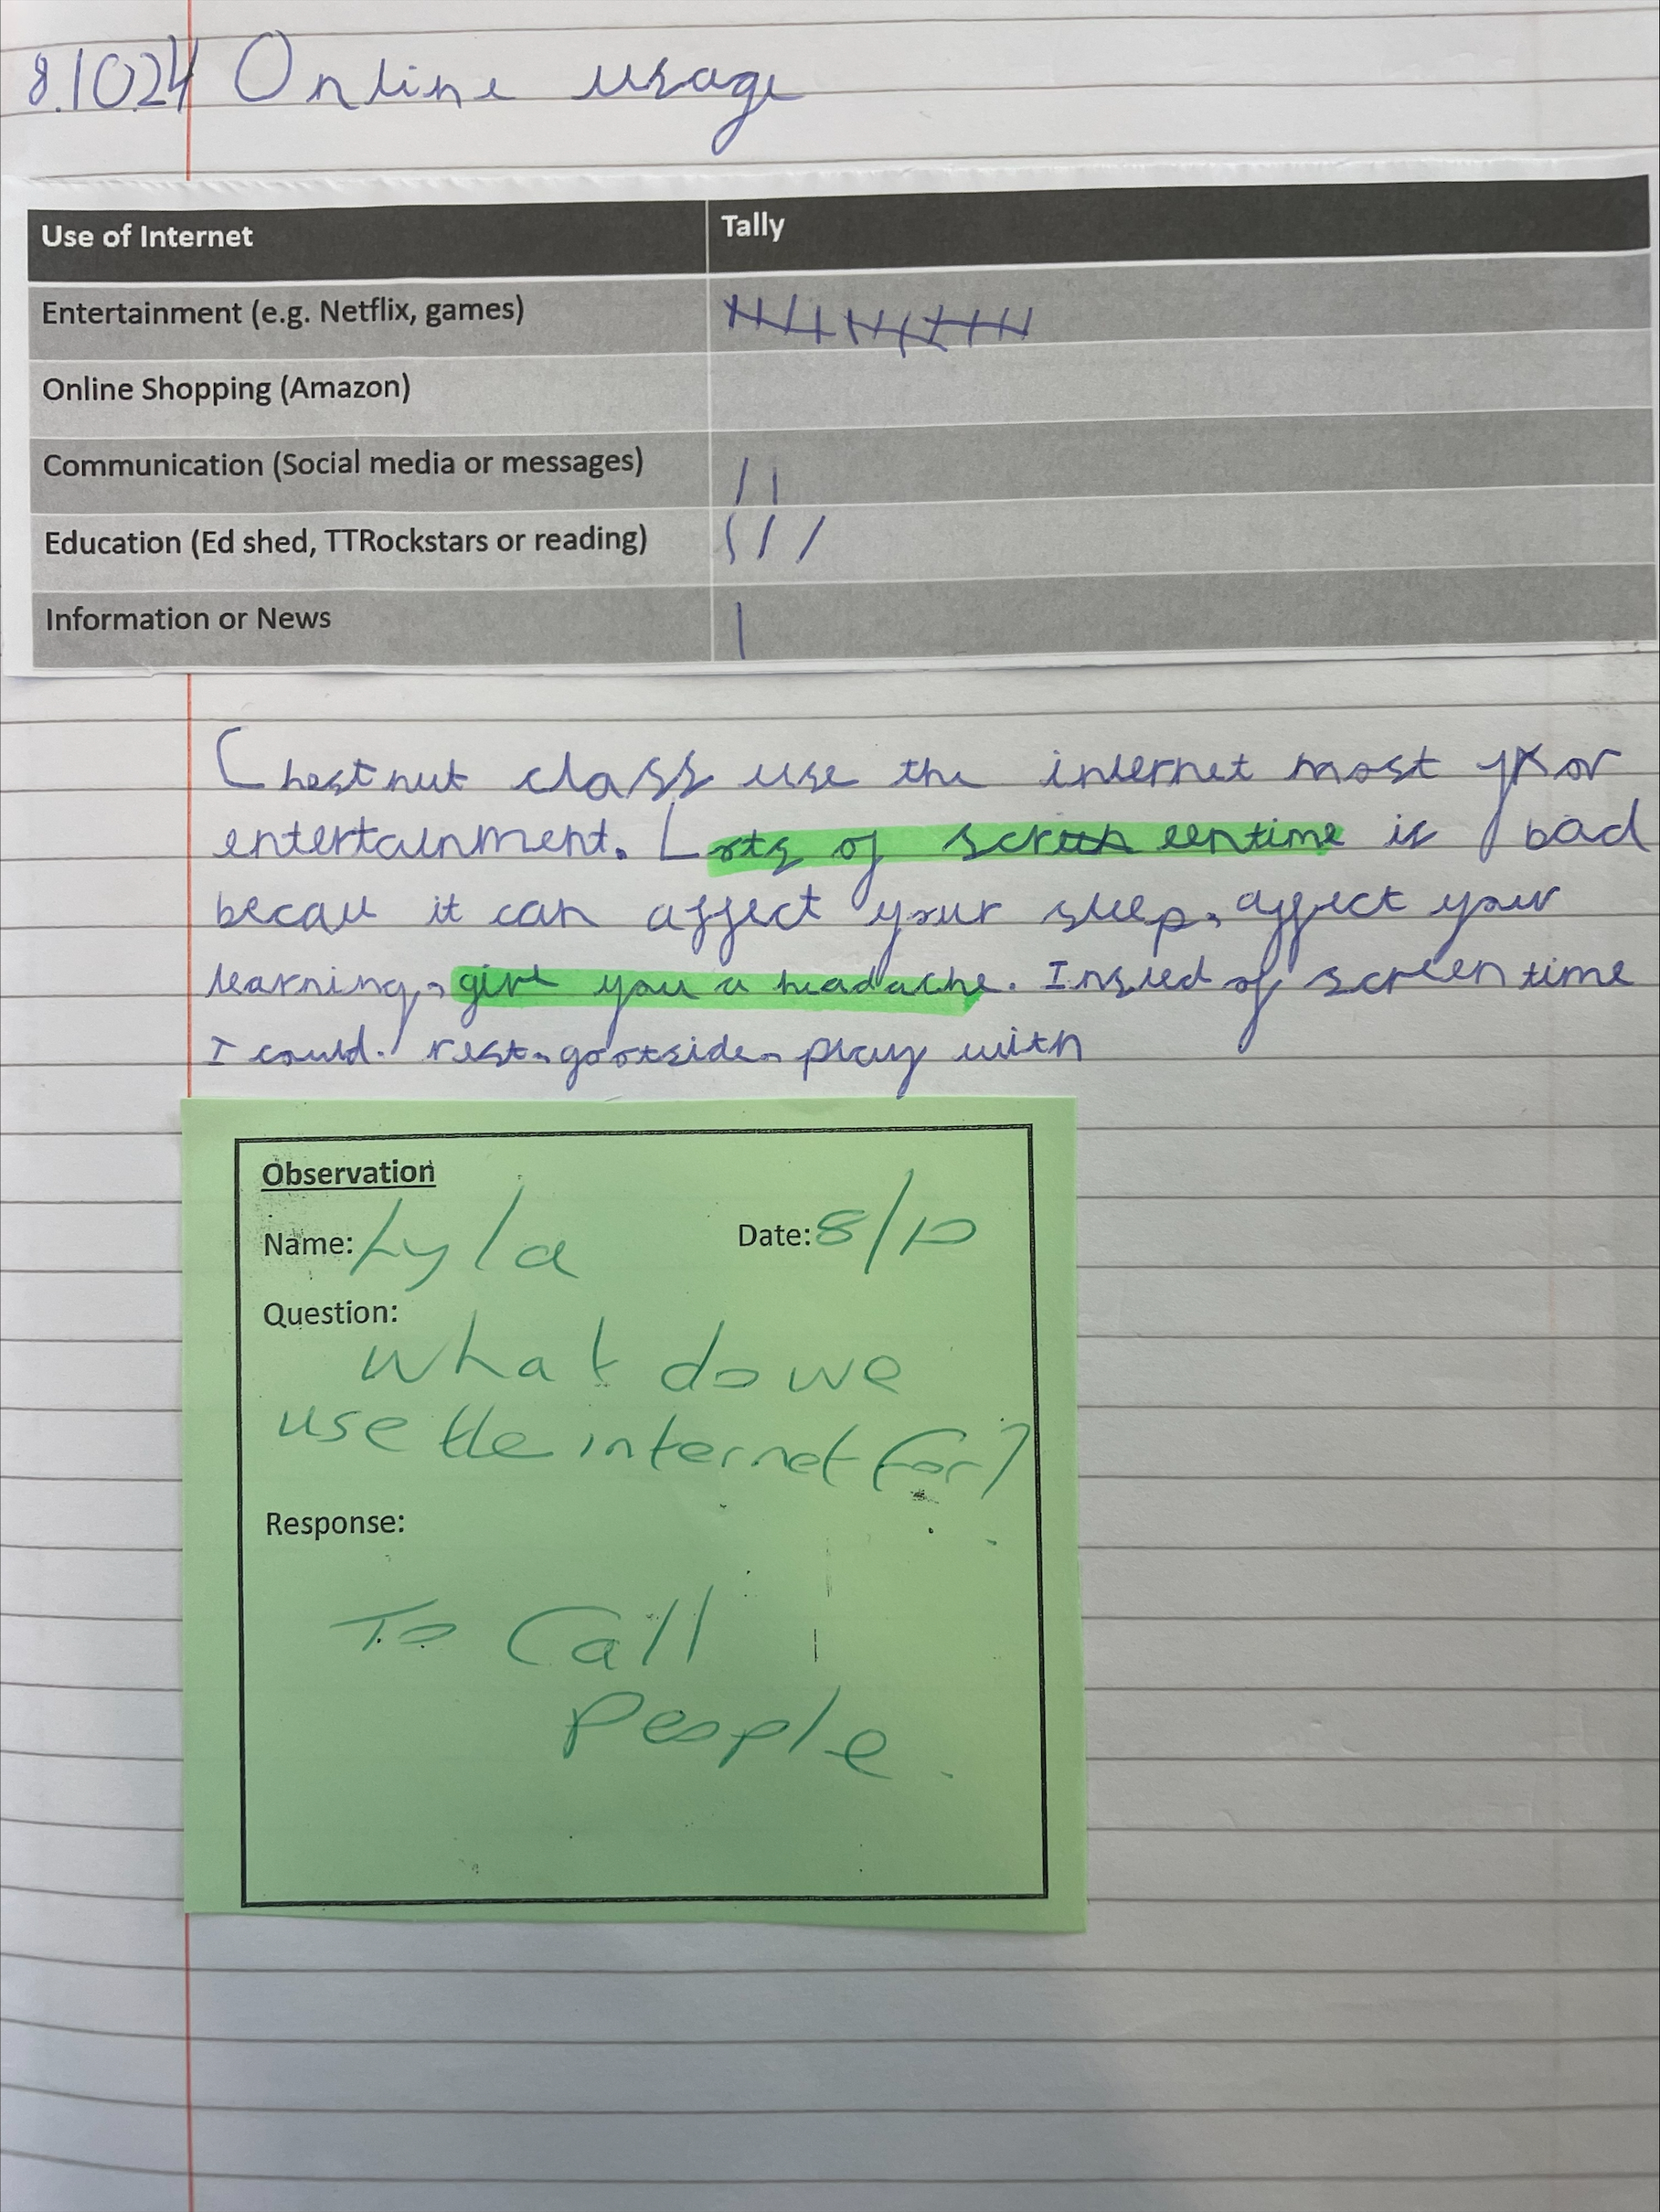 8.10.24 Online usage
Use of Internet Tally
Entertainment (e.g. Netflix, games)
Online Shopping (Amazon)
Communication (Social media or messages)
Education (Ed shed, TTRockstars or reading)
Information or News
Chestnut class use the internet most for
entertainment. Lots of screentime is bad
becau it can affect your sleep, affect your
learning, give you a headache. Insted of screen time
I could. rest, go otside, play with
Observation
Name: Lyla Date: 8/10
Question:
what do we
use the internet for?
Response:
To Call
People.